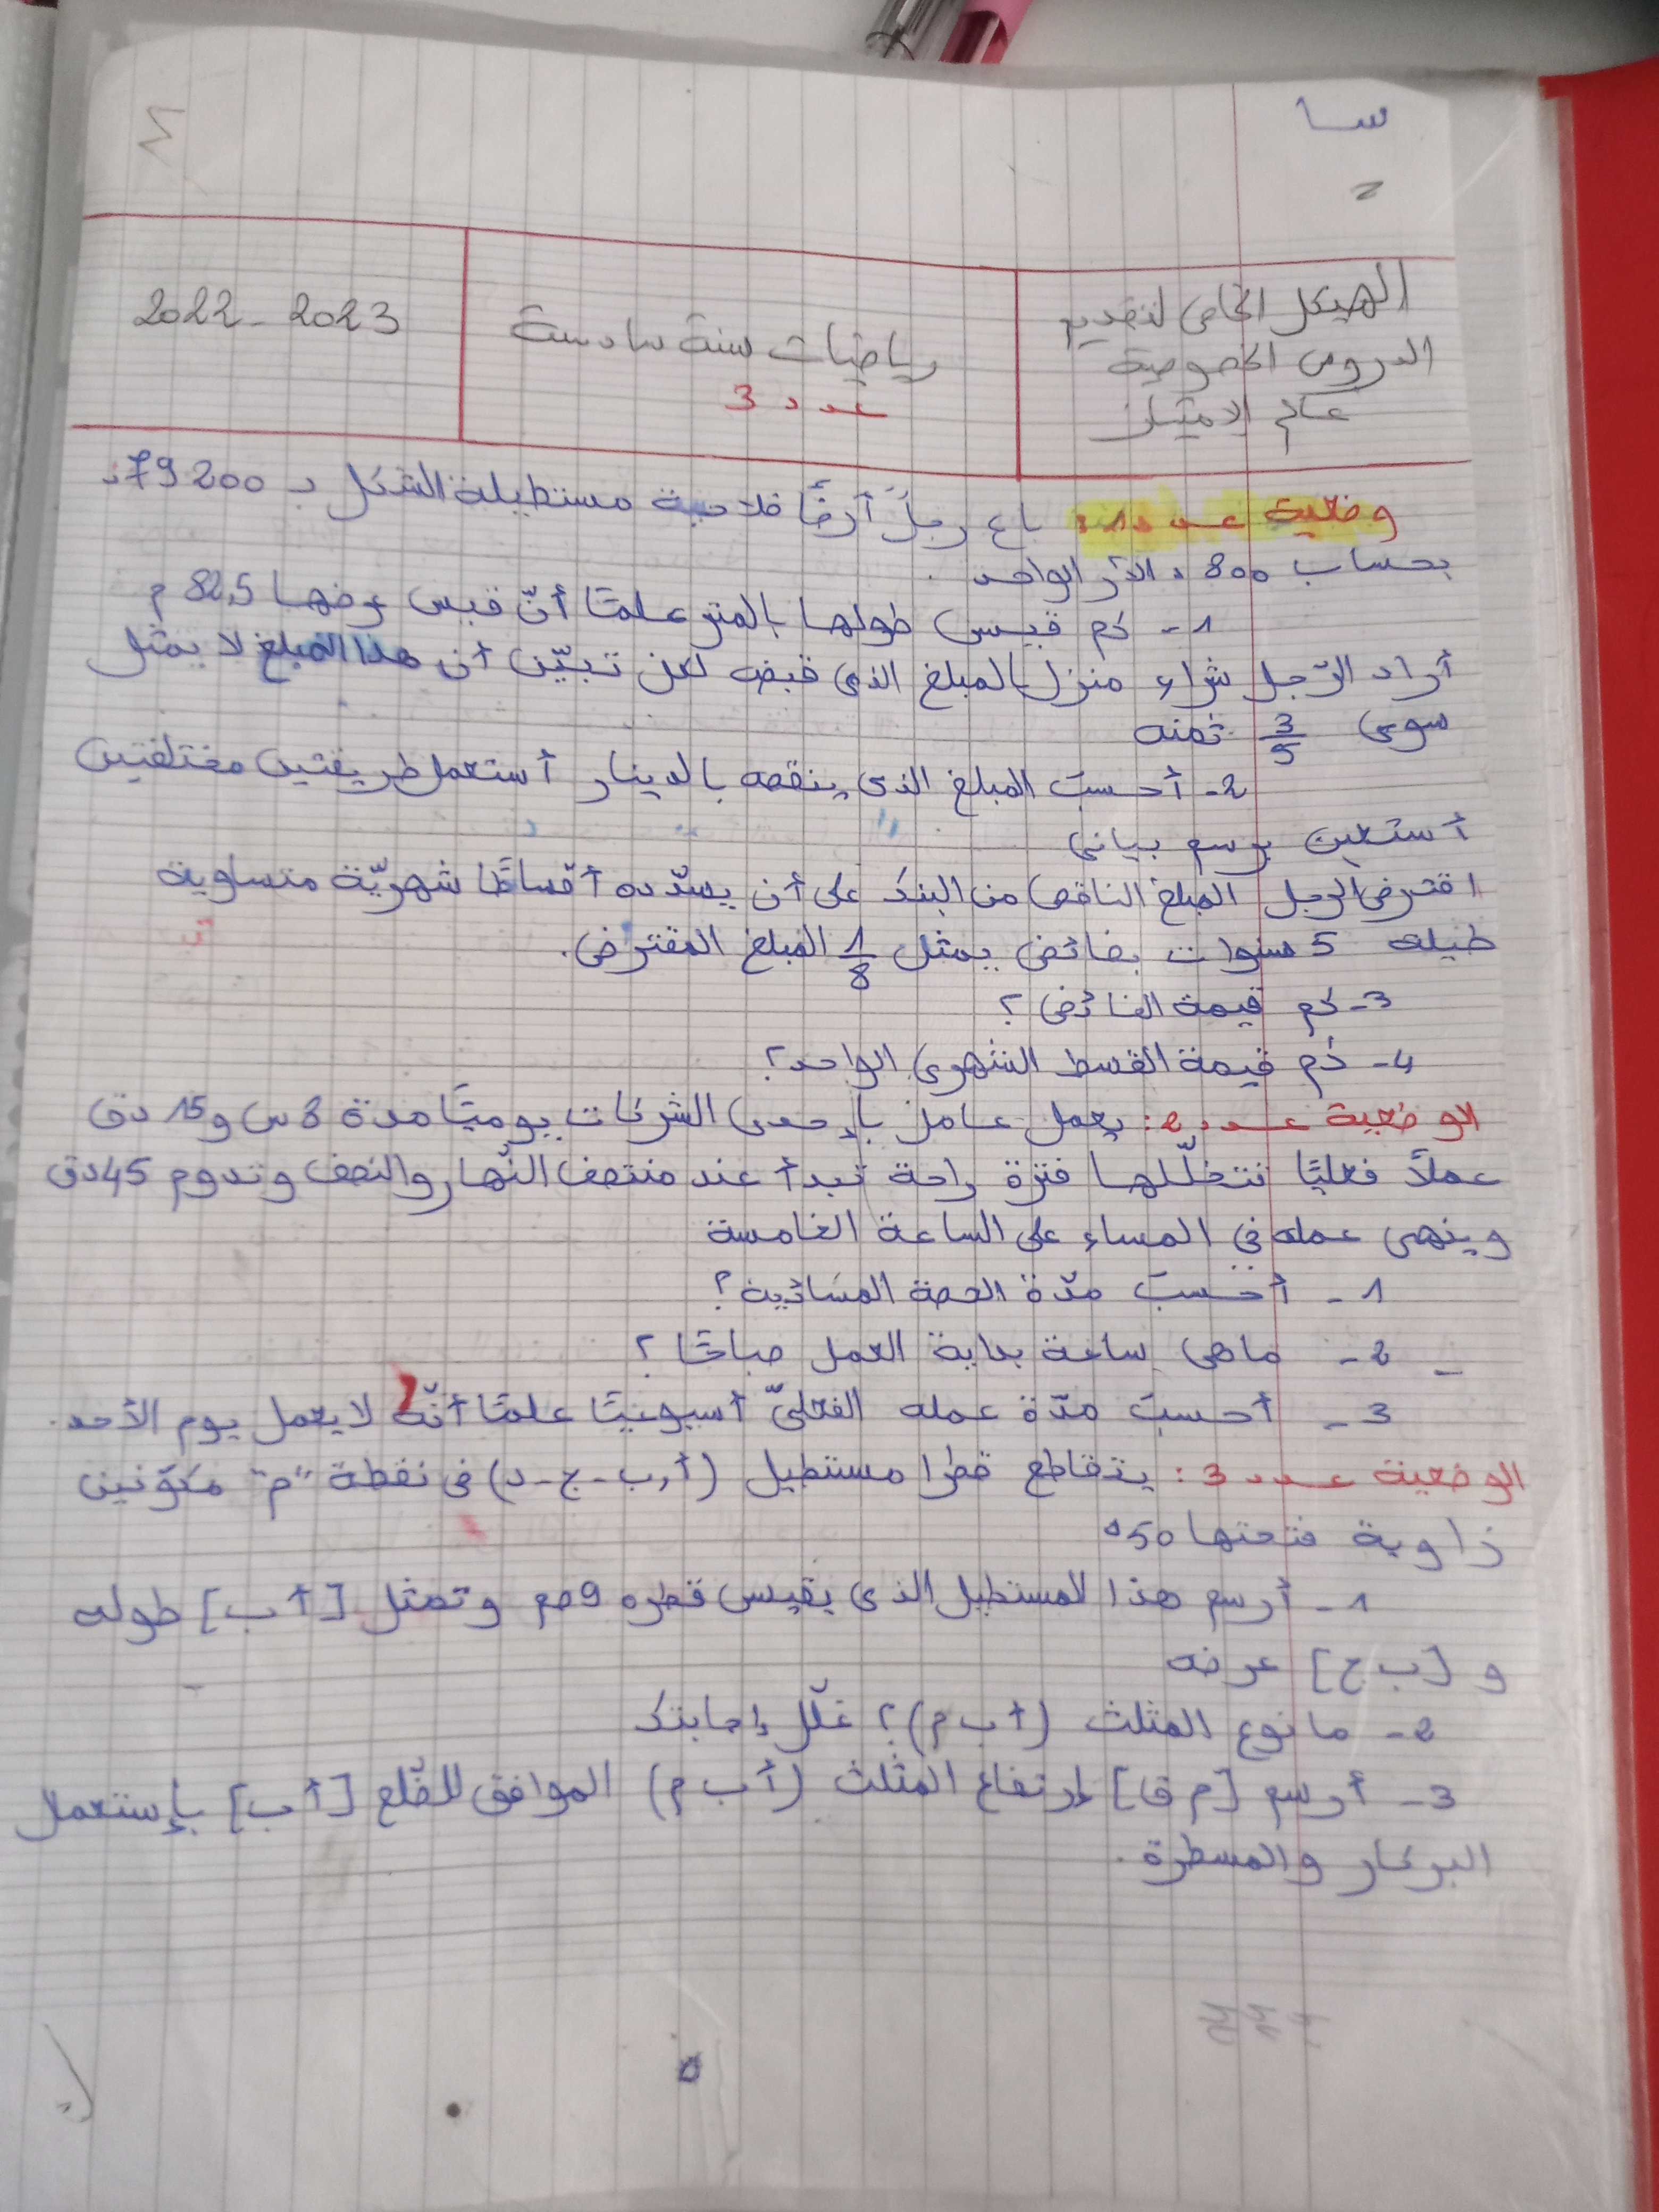 سا
2
الهيكل الخاص لتقديم
الدروس الخصوصية
عالم الامتياز
رياضيات سنة سادسة
عدد 3
2022-2023
وضعية عدد 1: باع رجلٌ أرضًا فلاحية مستطيلة الشكل بـ 79200د
بحساب 800 د الآر الواحد.
1- كم قيس طولها بالمتر علمًا أنّ قيس عرضها 82,5 م
أراد الرّجل شراء منزل بالمبلغ الذي قبضه لكن تبيّن أن هذا المبلغ لا يمثل
سوى 3/5 ثمنه
2- أحسبُ المبلغ الذي ينقصه بالدينار أستعمل طريقتين مختلفتين
أستعين برسم بياني
اقترض الرجل المبلغ الناقص من البنك على أن يسدّده أقساطًا شهريّة متساوية
طيلة 5 سنوات بفائض يمثل 1/8 المبلغ المقترض.
3- كم قيمة الفائض؟
4- كم قيمة القسط الشهري الواحد؟
الوضعية عدد 2: يعمل عامل بإحدى الشركات يوميًا مدة 8 س و 15 دق
عملاً فعليًا تتخلّلها فترة راحة تبدأ عند منتصف النّهار والنصف وتدوم 45 دق
وينهي عمله في المساء على الساعة الخامسة
1- أحسبُ مدّة الحصة المسائية؟
2- ماهي ساعة بداية العمل صباحًا؟
3- أحسبُ مدّة عمله الفعليّ أسبوعيًا علمًا أنّه لا يعمل يوم الأحد.
الوضعية عدد 3: يتقاطع قطرا مستطيل (أ-ب-ج-د) في نقطة "م" مكوّنين
زاوية فتحتها 50°
1- أرسم هذا المستطيل الذي يقيس قطره 9 صم وتمثل [أ ب] طوله
و [ب ج] عرضه
2- ما نوع المثلث (أ ب م)؟ علّل إجابتك
3- أرسم [م ق] إرتفاع المثلث (أ ب م) الموافق للضّلع [أ ب] بإستعمال
البركار والمسطرة.